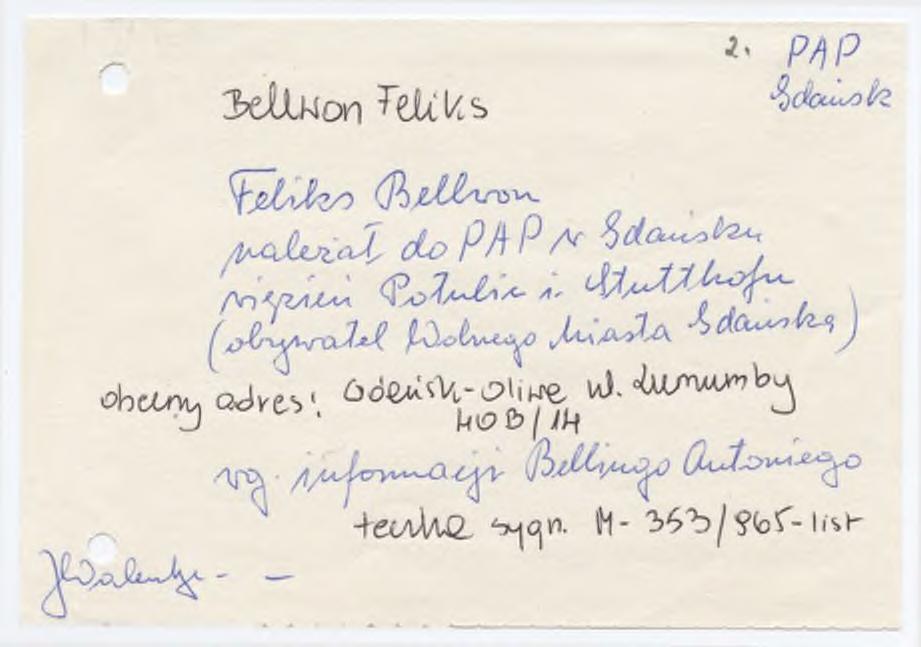 2. PAP
Gdańsk
Bellwon Feliks
Feliks Bellwon
należał do PAP w Gdańsku
więzień Potulic i Stutthofu
(obywatel Wolnego Miasta Gdańska)
obecny adres: Gdańsk-Oliwa ul. Lumumby
40B/14
wg. informacji Bellingo Antoniego
teczka sygn. M-353/965-list